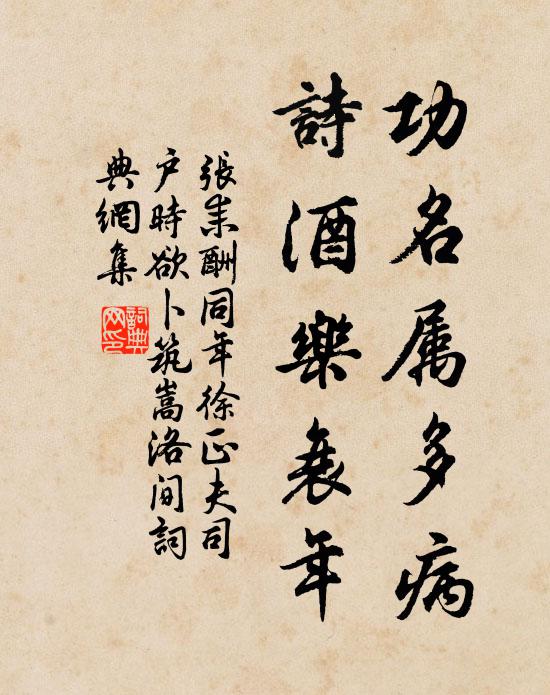 功名属多病
詩酒樂衰年
張耒酬同年徐正夫司
户時欲卜筑嵩洛间詞
典網集
詞典网印